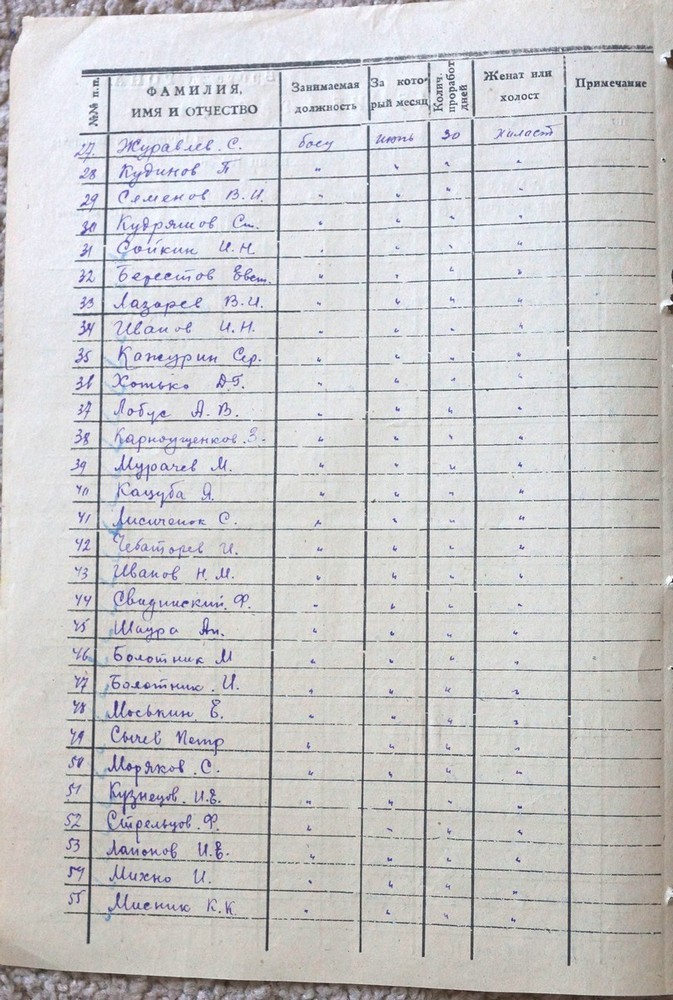 №№ п.п. ФАМИЛИЯ, ИМЯ И ОТЧЕСТВО Занимаемая должность За который месяц Колич. проработ дней Женат или холост Примечание
27 Журавлев. С. боец июнь 30 холост
28 Кудинов П " " " "
29 Семенов В.И. " " " "
30 Кудряшов Ст. " " " "
31 Сойкин И.Н. " " " "
32 Берестов Евст. " " " "
33 Лазарев В.И. " " " "
34 Иванов И.Н. " " " "
35 Кажурин Сер. " " " "
36 Хотько Д.Г. " " " "
37 Лобус А.В. " " " "
38 Карноущенков. З. " " " "
39 Мурачев М. " " " "
40 Кацуба Я. " " " "
41 Лисиченок С. " " " "
42 Чебаторев И. " " " "
43 Иванов Н.М. " " " "
44 Свидинский. Ф. " " " "
45 Шаура Ан. " " " "
46 Болотник М " " " "
47 Болотник. И. " " " "
48 Моськин Е. " " " "
49 Сычев Петр " " " "
50 Моряков. С. " " " "
51 Кузнецов. И.Е. " " " "
52 Стрельцов. Ф. " " " "
53 Лапонов И.Е. " " " "
54 Михно И. " " " "
55 Мисник К.К. " " " "